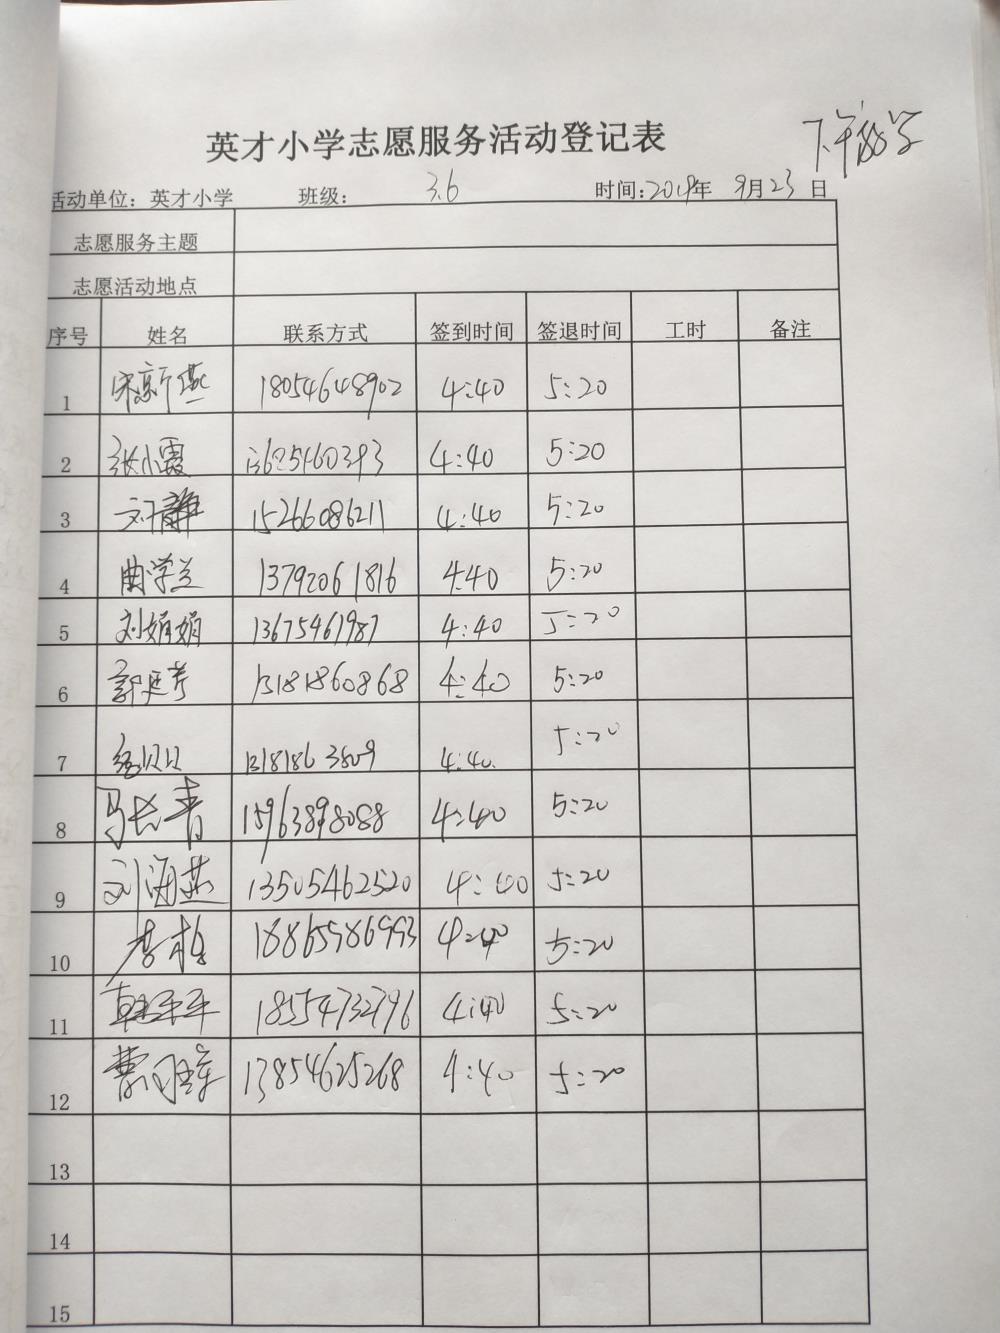 下午放学
英才小学志愿服务活动登记表
活动单位：英才小学 班级： 3.6 时间：2019年 9月23日
志愿服务主题
志愿活动地点
序号 姓名 联系方式 签到时间 签退时间 工时 备注
1 宋新燕 18054648902 4:40 5:20
2 张小霞 13625460393 4:40 5:20
3 刘静 15266086211 4:40 5:20
4 曲学兰 13792061816 4:40 5:20
5 刘娟娟 13675461987 4:40 5:20
6 13181860868 4:40 5:20
7 贝贝 13181863809 4:40. 5:20
8 马长青 15963898088 4:40 5:20
9 刘海燕 13505462520 4:40 5:20
10 李梅 18865986993 4:40 5:20
11 韩平平 18554732796 4:40 5:20
12 曹 13854625268 4:40 5:20
13
14
15